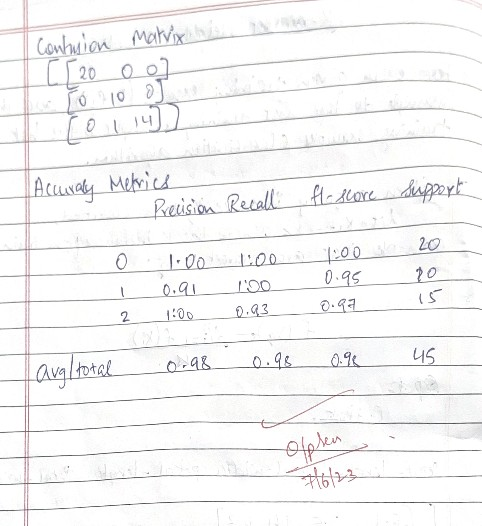 Confusion Matrix
[[20 0 0]
[0 10 0]
[0 1 14]]
Accuracy Metrics
Precision Recall f1-score support
0 1:00 1:00 1:00 20
1 0.91 1:00 0.95 10
2 1:00 0.93 0.97 15
avg/total 0.98 0.98 0.98 45
O/p seen
7/6/23